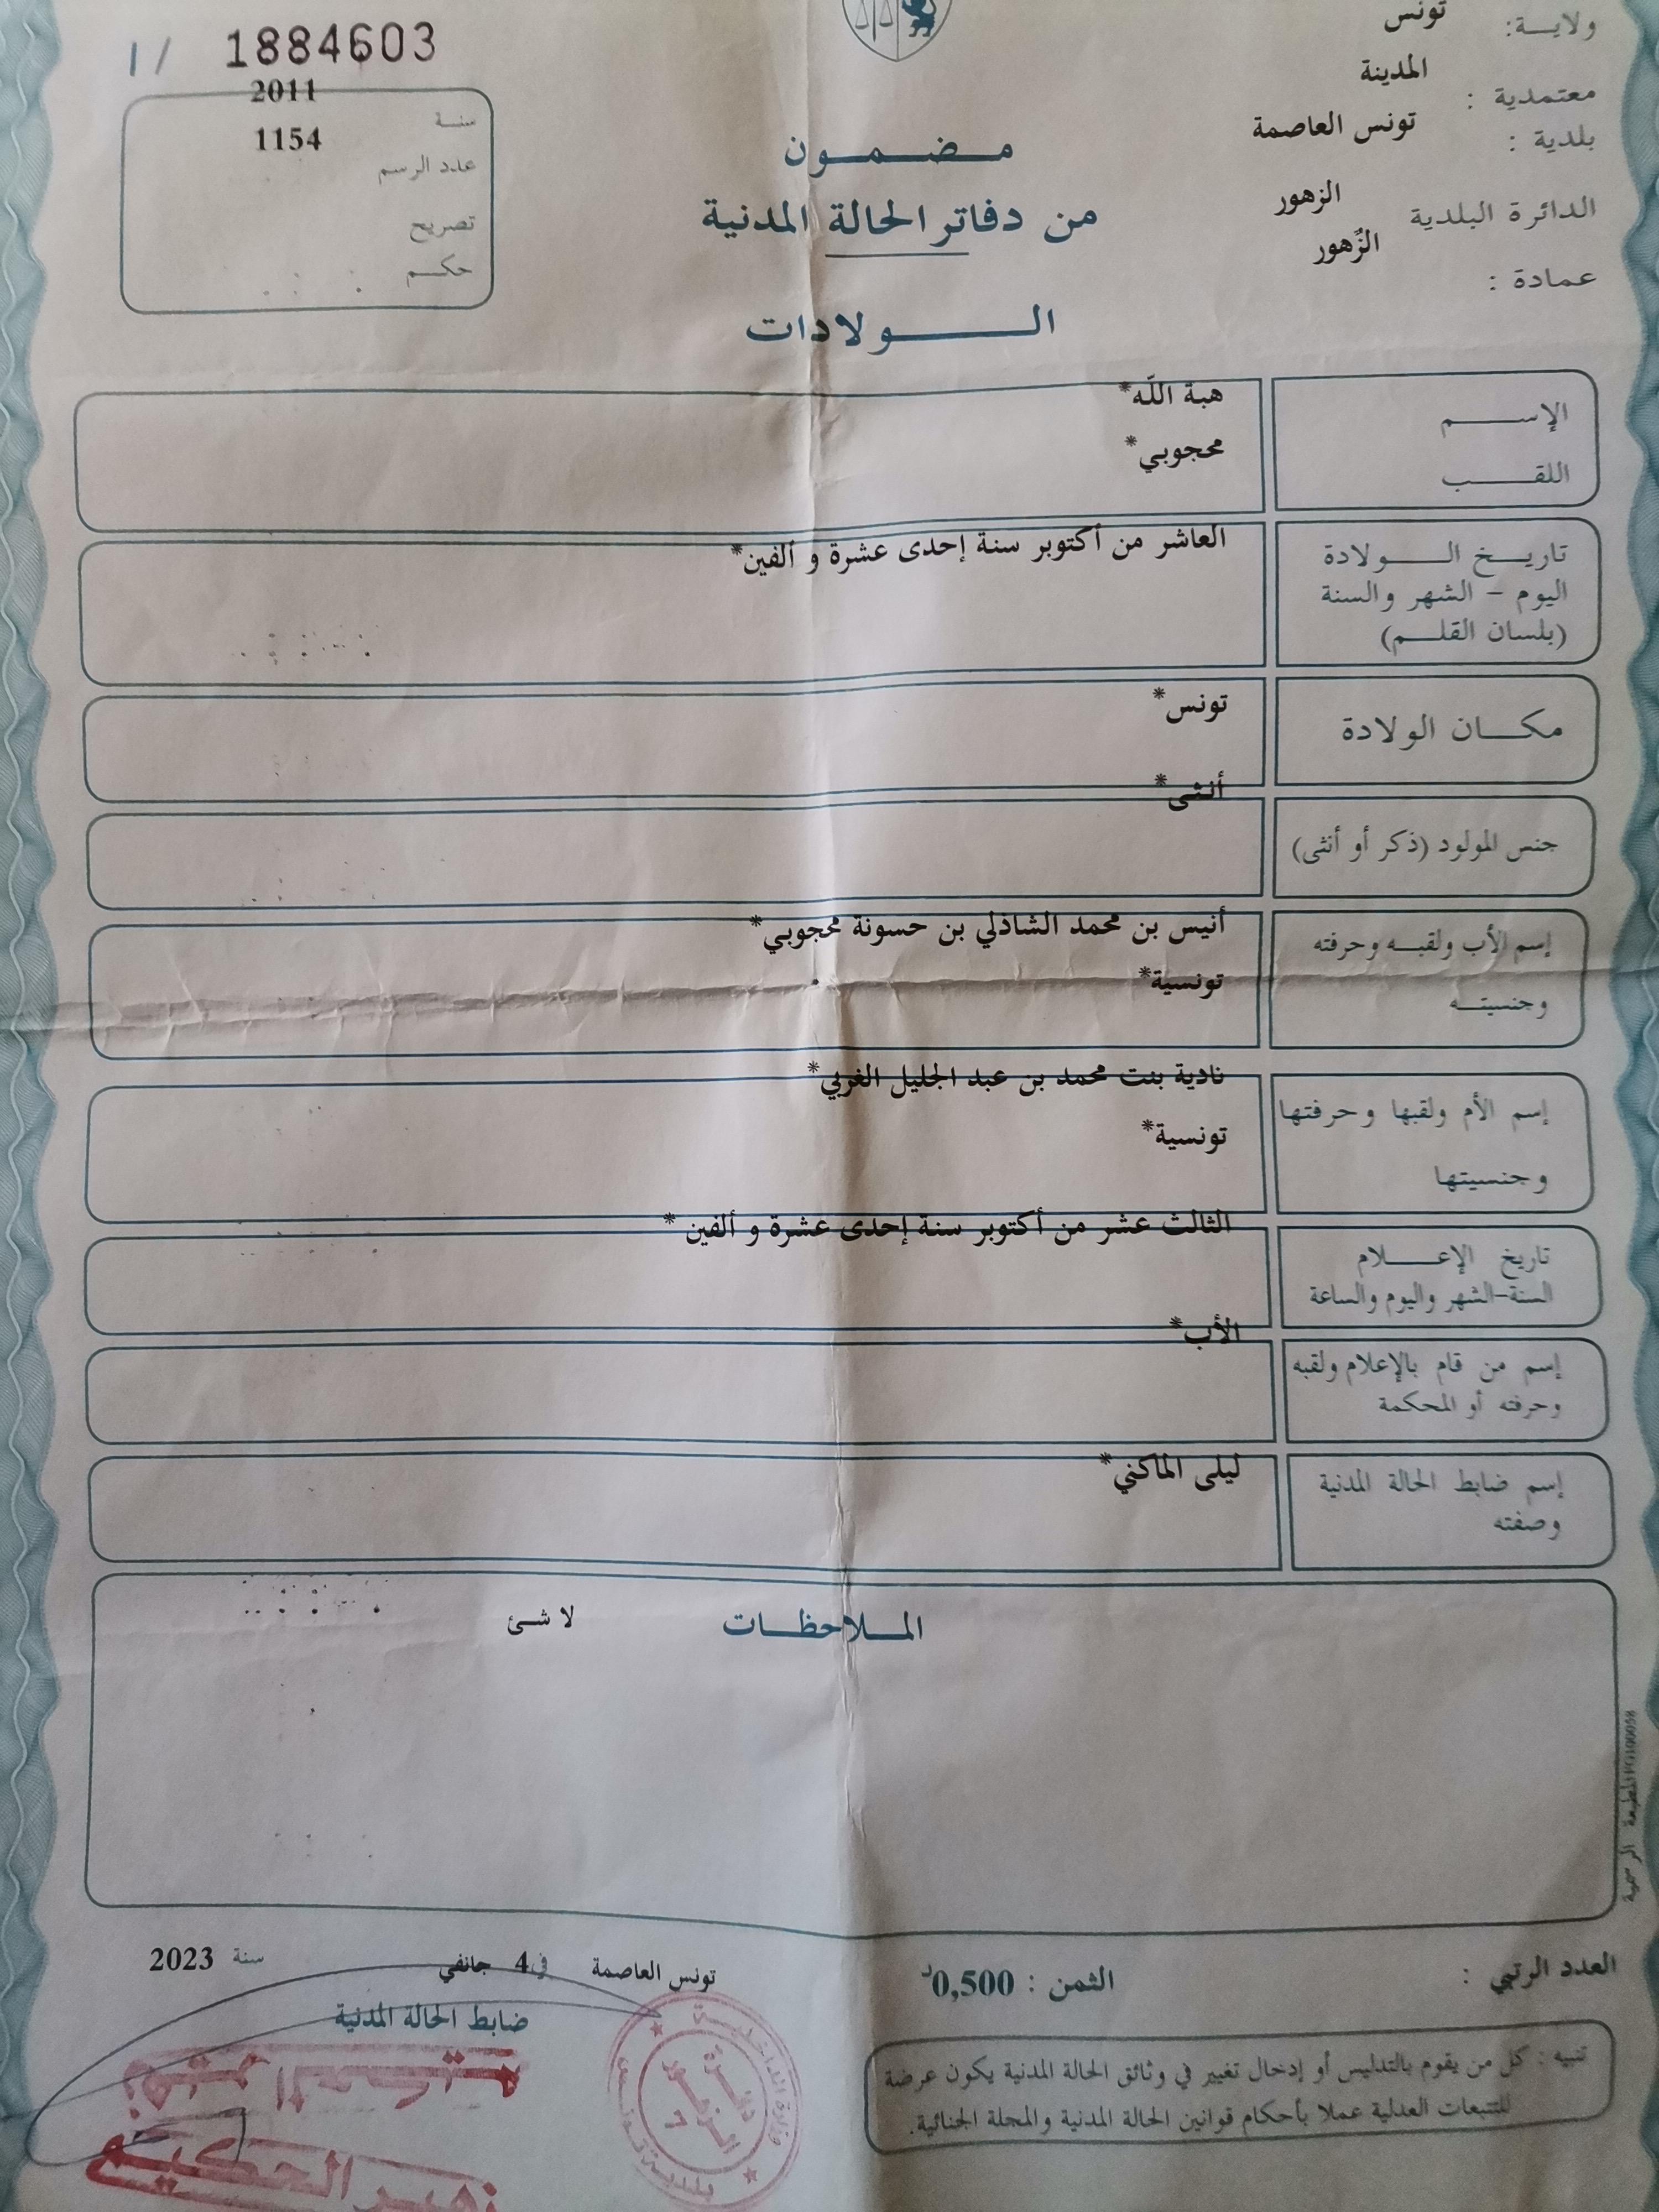 ولايـــة: تونس
معتمدية : المدينة
بلدية : تونس العاصمة
الدائرة البلدية الزهور
عمادة : الزّهور
1/ 1884603
سنـة 2011
عدد الرسم 1154
تصريح
حكــم
مــضــمــون
من دفاتر الحالة المدنية
الــولادات
الإســـم هبة اللّه*
اللقـــب محجوبي*
تاريــخ الــولادة العاشر من أكتوبر سنة إحدى عشرة و ألفين*
اليوم - الشهر والسنة
(بلسان القلــم)
مكــان الولادة تونس*
جنس المولود (ذكر أو أنثى) أنثى*
إسم الأب ولقبـه وحرفته أنيس بن محمد الشاذلي بن حسونة محجوبي*
وجنسيتــه تونسية*
إسم الأم ولقبها وحرفتها نادية بنت محمد بن عبد الجليل الغربي*
وجنسيتها تونسية*
تاريخ الإعــلام الثالث عشر من أكتوبر سنة إحدى عشرة و ألفين *
السنة-الشهر واليوم والساعة
إسم من قام بالإعلام ولقبه الأب*
وحرفته أو المحكمة
إسم ضابط الحالة المدنية ليلى الماكني*
وصفته
الملاحظات لا شئ
العدد الرتبي :
الثمن : 0,500د
تونس العاصمة في 4 جانفي سنة 2023
ضابط الحالة المدنية
تنبيه : كل من يقوم بالتدليس أو إدخال تغيير في وثائق الحالة المدنية يكون عرضة
للتتبعات العدلية عملا بأحكام قوانين الحالة المدنية والمجلة الجنائية.
وزارة الداخلية
دائرة
الزهور
7
بلدية تونس